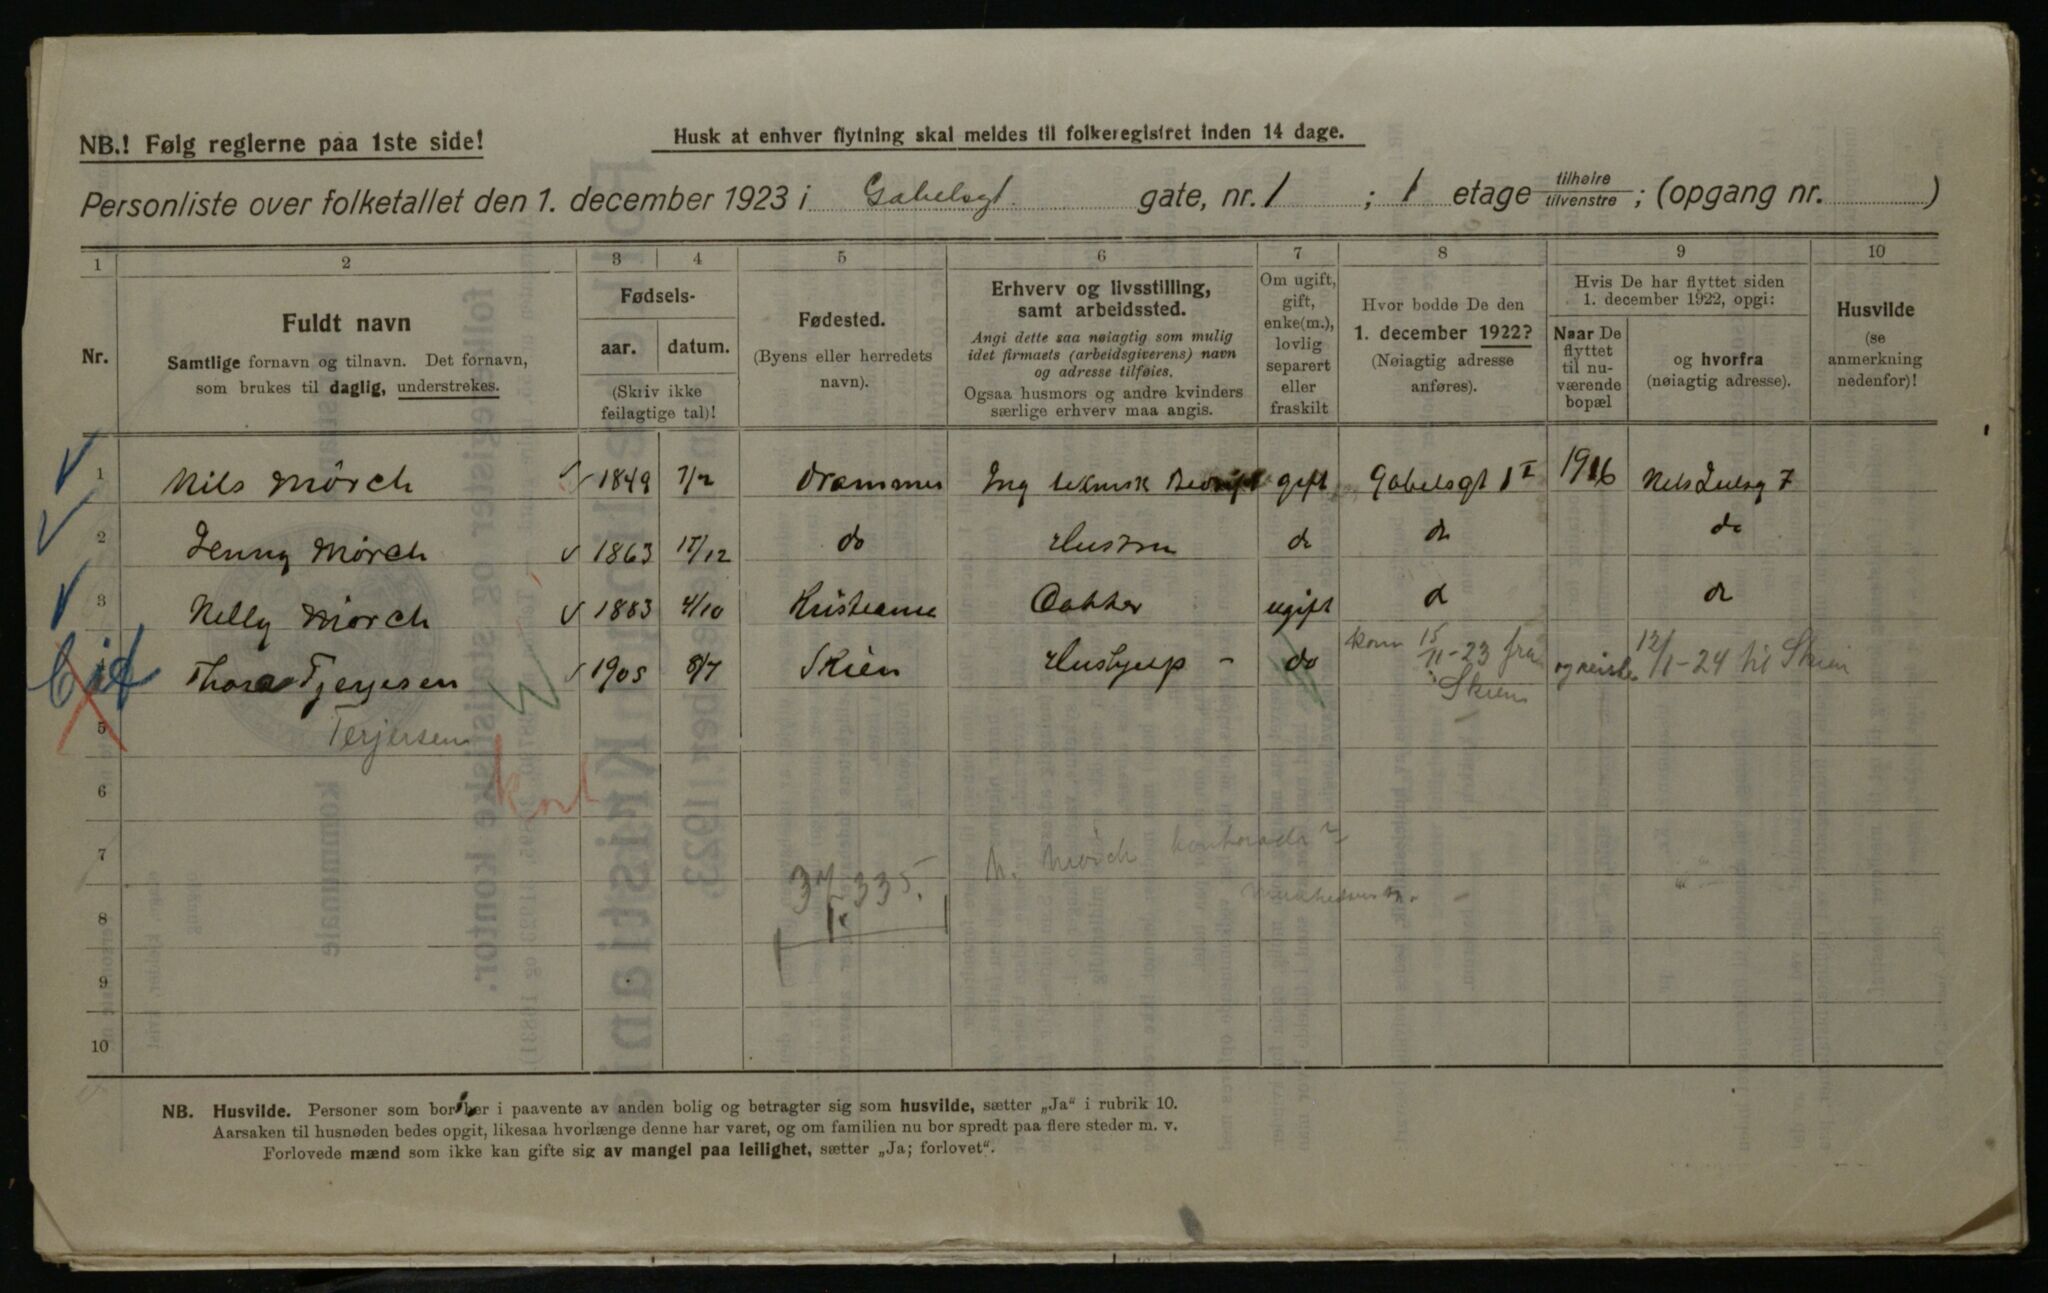 NB.! Følg reglerne paa 1ste side!
Husk at enhver flytning skal meldes til folkeregistret inden 14 dage.
Personliste over folketallet den 1. december 1923 i Gabelsgt. gate, nr. 1 ; 1 etage tilhøire/tilvenstre ; (opgang nr. )
1 2 3 4 5 6 7 8 9 10
Nr.
Fuldt navn
Samtlige fornavn og tilnavn. Det fornavn,
som brukes til daglig, understrekes.
Fødsels-
aar. datum.
(Skriv ikke
feilagtige tal)!
Fødested.
(Byens eller herredets
navn).
Erhverv og livsstilling,
samt arbeidssted.
Angi dette saa nøiagtig som mulig
idet firmaets (arbeidsgiverens) navn
og adresse tilføies.
Ogsaa husmors og andre kvinders
særlige erhverv maa angis.
Om ugift,
gift,
enke(m.),
lovlig
separert
eller
fraskilt
Hvor bodde De den
1. december 1922?
(Nøiagtig adresse
anføres).
Hvis De har flyttet siden
1. december 1922, opgi:
Naar De
flyttet
til nu-
værende
bopæl
og hvorfra
(nøiagtig adresse).
Husvilde
(se
anmerkning
nedenfor)!
1 Nils Mörch 1849 7/2 Drammen Ing teknisk gift Gabelsgt 1 I 1916 Nels Juelsg 7
2 Jenny Mörch 1863 15/12 do Hustru do do do
3 Nelly Mörch 1883 4/10 Kristiania Datter ugift do do
Thora Tjerjesen 1905 8/7 Skien Hushjelp - do kom 15/11-23 fra Skien og reiste 12/1-24 til Skien
5 Terjersen
kort
6
7 N. Mörch
37.335.
8
9
10
NB. Husvilde. Personer som bor her i paavente av anden bolig og betragter sig som husvilde, sætter „Ja“ i rubrik 10.
Aarsaken til husnøden bedes opgit, likesaa hvorlænge denne har varet, og om familien nu bor spredt paa flere steder m. v.
Forlovede mænd som ikke kan gifte sig av mangel paa leilighet, sætter „Ja; forlovet“.